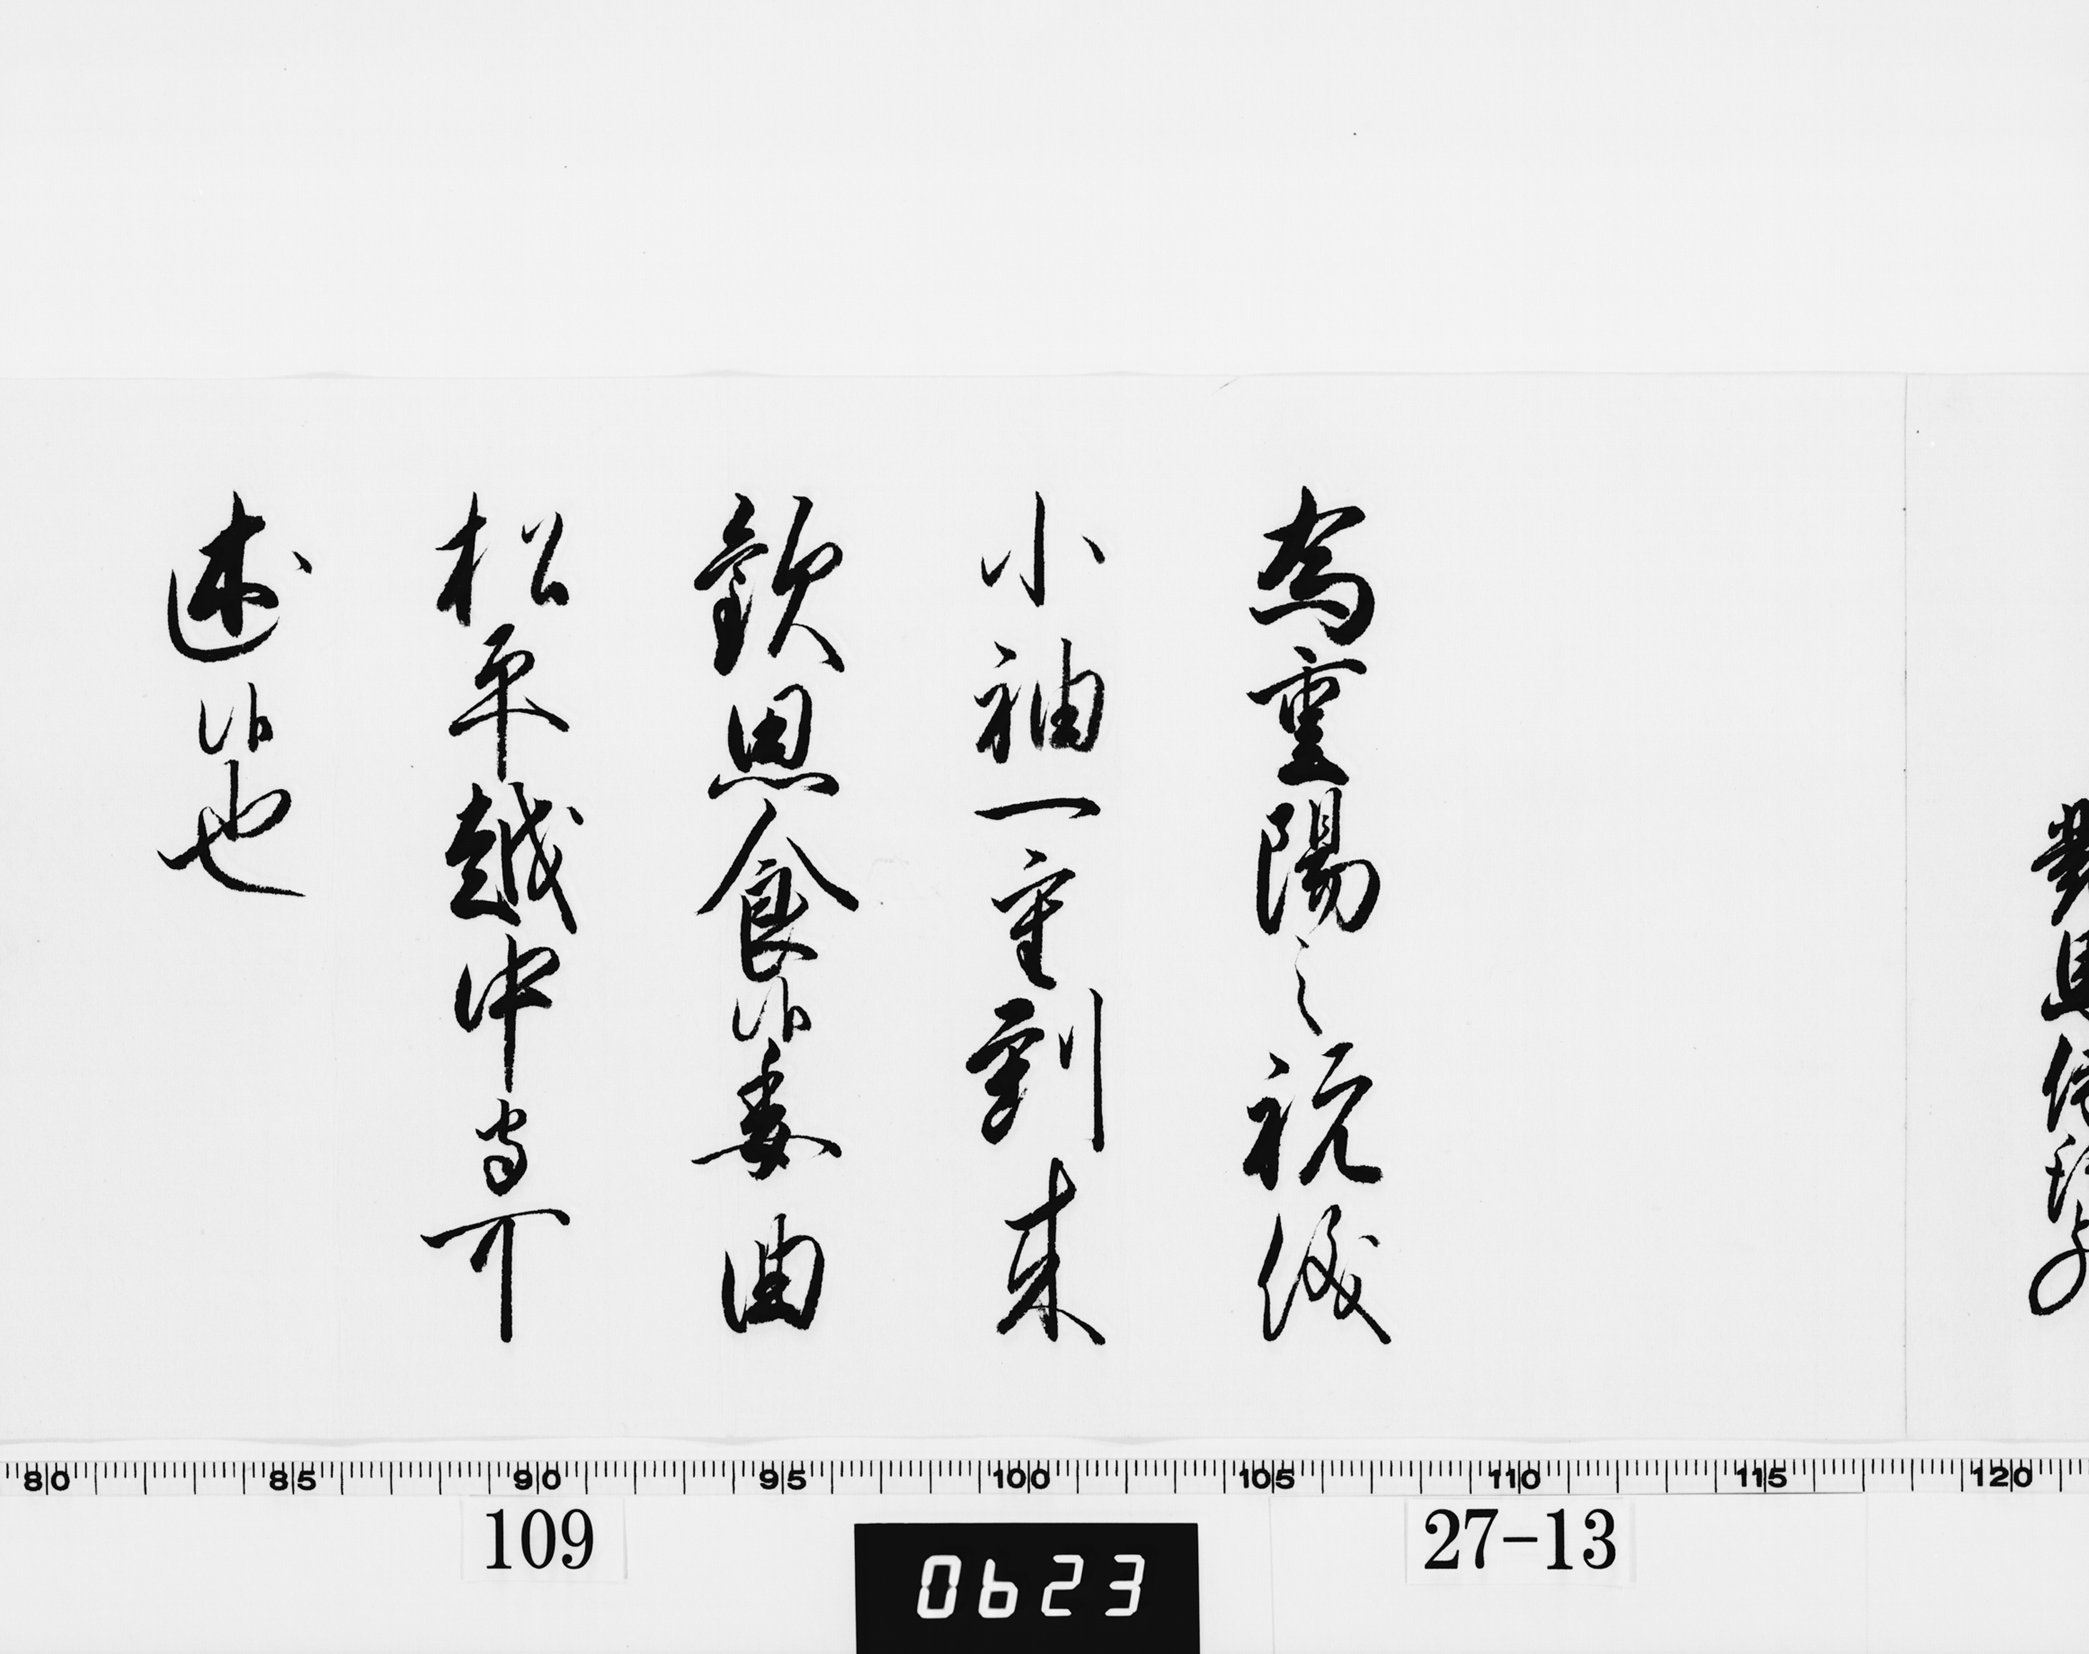 為重陽之祝儀
小袖一重到来
歓思食候委曲
松平越中守可
述候也
80 85 90 95 100 105 110 115 120
109
0623
27-13